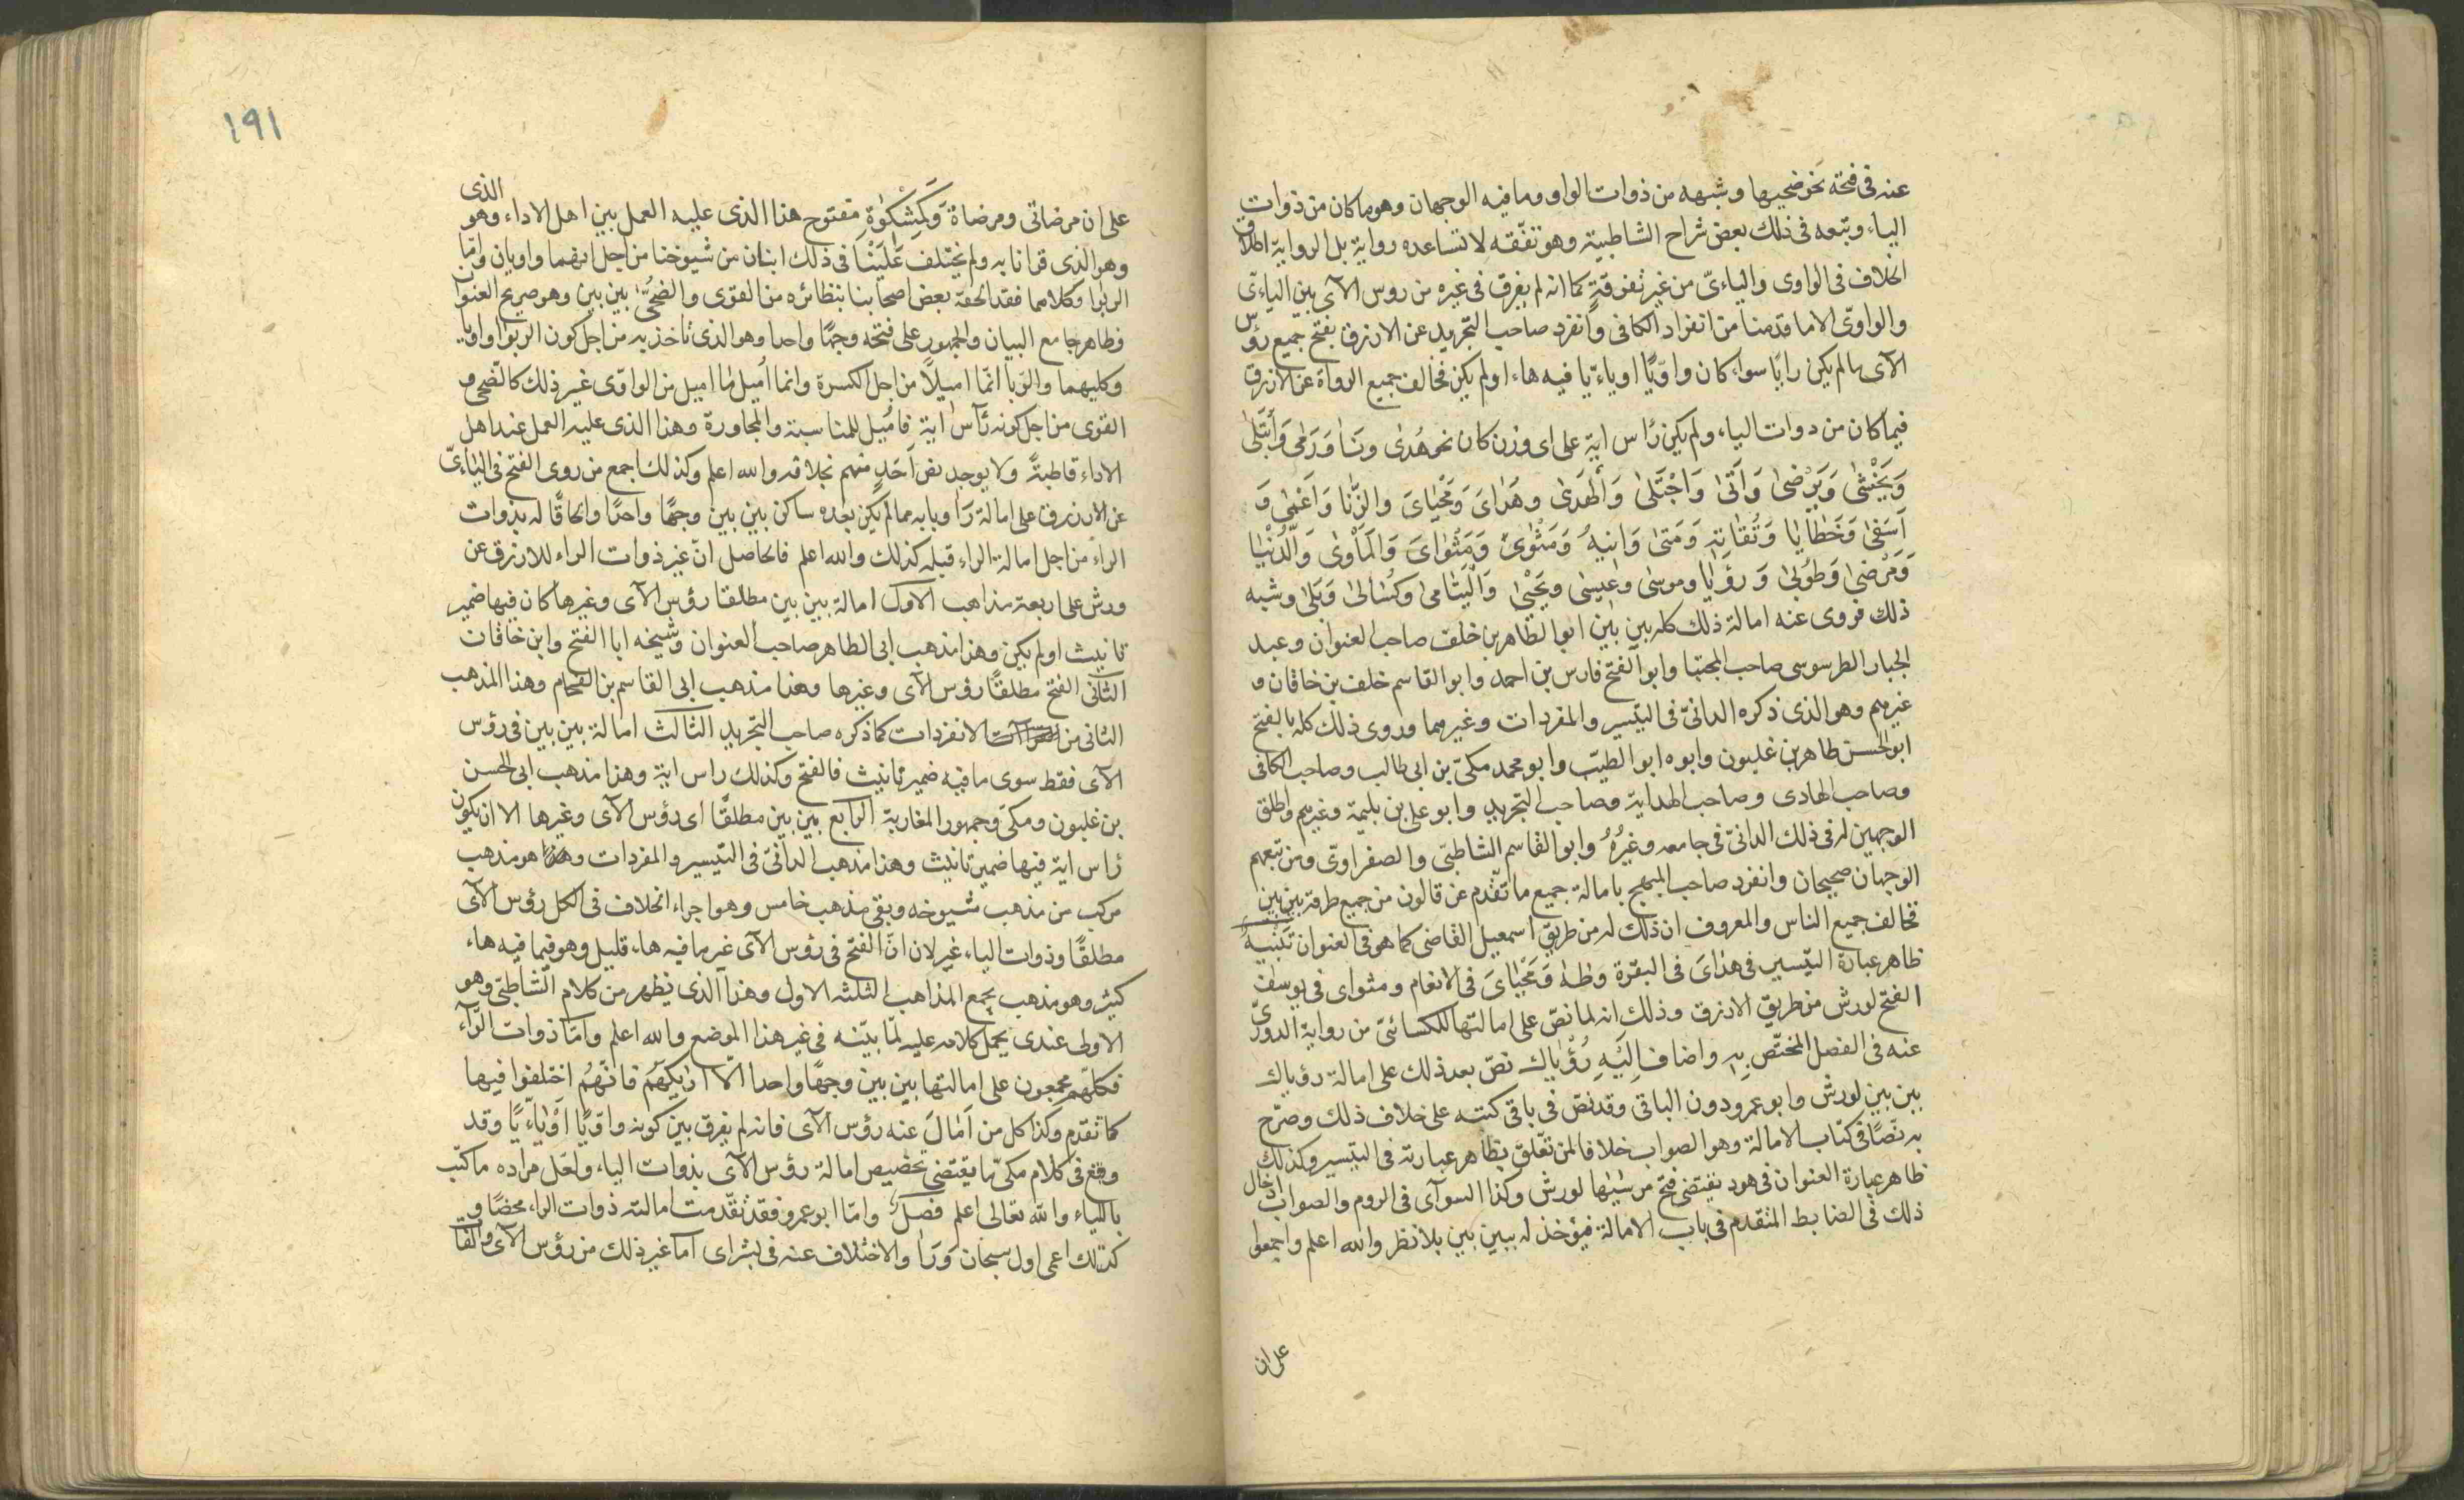 عنه فى فتحه نحو ضحيها وشبهه من ذوات الواو وما فيه الوجهان وهو ما كان من ذوات
الياء وتبعه فى ذلك بعض شراح الشاطبية وهو تفقه لا تساعده رواية بل الرواية اطلاق
الخلاف فى الواوى واليائىّ من غير تفرقةٍ كما انه لم يفرق فى غيره من روس الآى بين اليائىّ
والواوىّ الا ما قدمنا من انفراد الكافى وانفرد صاحب التجريد عن الازرق بفتح جميع رؤس
الآى ما لم يكن رايًا سواء كان واويًّا او يائيّا فيه هاء او لم يكن فخالف جميع الرواة عن الازرق
فيما كان من دوات الياء ولم يكن رأس اية على اى وزن كان نحو هُدىٰ ونَأٰ وَرَمٰى وَابْتَلىٰ
وَيَخْشىٰ وَيَرْضىٰ وَاَتىٰ وَاجْتَلىٰ وَالْهَدىٰ وهَدٰاىَ وَمَحْيٰاىَ والزِّنا وَاَعْمٰى وَ
اَسَفىٰ وَخَطٰايٰا وَتُقٰاتِهِ وَمَتىٰ وَاِنٰيهُ وَمَثْوىً وَمَثْوٰاىَ وَالْمَأْوىٰ وَالدُّنْيٰا
وَمَرْضىٰ وَطُوبىٰ وَرُؤْيٰا وموسىٰ وعيسىٰ ويَحْيىٰ وَالْيَتٰامىٰ وكُسٰالىٰ وَبَلىٰ وشبه
ذلك فروى عنه امالة ذلك كله بين بين ابو الطاهر بن خلف صاحب العنوان وعبد
الجبار الطرسوسى صاحب المجتبا وابو الفتح فارس بن احمد وابو القاسم خلف بن خاقان و
غيرهم وهو الذى ذكره الدانىّ فى التيسير والمفردات وغيرهما وروى ذلك كله بالفتح
ابو الحسن طاهر بن غلبون وابوه ابو الطيّب وابو محمد مكىّ بن ابى طالب وصاحب الكافى
وصاحب الهادى وصاحب الهداية وصاحب التجريد وابو على بن بليمة وغيرهم واطلق
الوجهين له فى ذلك الدانىّ فى جامعه وغيرُهُ وابو القاسم الشاطبىّ والصفراوىّ ومن تبعهم
الوجهان صحيحان وانفرد صاحب المبهج بامالة جميع ما تقدم عن قالون من جميع طرقه بين بين
فخالف جميع الناس والمعروف ان ذلك له من طريق اسمعيل القاضى كما هو فى العنوان تنبيه
ظاهر عبارة التيسير فى هداىَ فى البقرة وطه وَمَحْيٰاىَ فى الانعام ومثواى فى يوسف
الفتح لورش من طريق الازرق وذلك انه لما نصّ على امالتها للكسائىّ من رواية الدورىّ
عنه فى الفصل المختصّ به واضاف اِلَيْهِ رُؤْيٰاك نصّ بعد ذلك على امالة رؤياك
بين بين لورش وابو عمرو دون الباقى وقد نصّ فى باقى كتبه على خلاف ذلك وصرّح
به نصًا فى كتاب الامالة وهو الصواب خلافا لمن تعلّق بظاهر عبارته فى التيسير وكذلك
ظاهر عبارة العنوان فى هود يقتضى فتح مرسٰيها لورش وكذا السوآى فى الروم والصواب ادخال
ذلك فى الضابط المتقدم فى باب الامالة فيؤخذ له ببين بين بلا نظر والله اعلم واجمعوا
على ان
١٩١
على ان مرضاتى ومرضاة وَكَمِشْكٰوةٍ مفتوح هذا الذى عليه العمل بين اهل الاداء وهو الذى
وهو الذى قرانا به ولم يختلف عَلَيْنٰا فى ذلك اثنان من شيوخنا من اجل انهما واويان وامّا
الربوا وكلاهما فقد الحقه بعض اصحابنا بنظائره من القوى والضحىٰ بين بين وهو صريح العنوان
وظاهر جامع البيان والجمهور على فتحه وجهًا واحدا وهو الذى ناخذ به من اجل كون الربوا واويا
وكليهما والرّبا انّما اميلاً من اجل الكسرة وانما اُميل ما اميل من الواوى غير ذلك كالضحى و
القوى من اجل كونه رأس اية فاُميل للمناسبة والمجاورة وهذا الذى عليه العمل عند اهل
الاداء قاطبةً ولا يوجد نص اَحَدٍ منهم بخلافه والله اعلم وكذلك اجمع من روى الفتح فى اليائىّ
عن الازرق على امالة رَاٰ وبابه مما لم يكن بعده ساكن بين بين وجهًا واحدًا والحاقًا له بذوات
الراء من اجل امالة الراء قبله كذلك والله اعلم فالحاصل انّ غير ذوات الراء للازرق عن
ورش على اربعة مذاهب الاول امالة بين بين مطلقا رؤس الآى وغيرها كان فيها ضمير
تانيث او لم يكن وهذا مذهب ابى الطاهر صاحب العنوان وشيخه ابا الفتح وابن خاقان
الثانى الفتح مطلقًا رؤس الآى وغيرها وهذا مذهب ابى القاسم بن الفحام وهذا المذهب
الثانى من الانفردات كما ذكره صاحب التجريد الثالث امالة بين بين فى رؤس
الآى فقط سوى ما فيه ضمير تانيث فالفتح وكذلك راس اية وهذا مذهب ابى الحسن
بن غلبون ومكى وجمهور المغاربة الرابع بين بين مطلقًا اى رؤس الآى وغيرها الا ان يكون
رأس اية فيها ضمير تانيث وهذا مذهب الدانىّ فى التيسير والمفردات وهذا هو مذهب
مركب من مذهب شيوخه وبقى مذهب خامس وهو اجراء الخلاف فى الكل رؤس الآى
مطلقًا وذوات الياء غير لان انّ الفتح فى رؤس الآى غير ما فيه هاء قليل وهو فيما فيه هاء
كثير وهو مذهب يجمع المذاهب الثلثه الاول وهذا الذى يظهر من كلام الشاطبىّ وهو
الاولى عندى يحمل كلامه عليه لمّا بيّنته فى غير هذا الموضع والله اعلم وامّا ذوات الرّآء
فكلهم مجمعون على امالتها بين بين وجهًا واحدا الّا اريكهم فانهُمُ اختلفوا فيها
كما تقدم وكذا كل من اَمٰالَ عنه رؤس الآى فانه لم يفرق بين كونه واويًّا اَوْيٰائيًّا وقد
وقع فى كلام مكىّ ما يقتضى تخصيص امالة رؤس الآى بذوات الياء ولعل مراده ما كتب
بالياء والله تعالى اعلم فصل وامّا ابو عمرو فقد تقدّمت امالته ذوات الراء محضًا و
كذلك اعمى اول سبحان وَرَاٰ والاختلاف عنه فى بشراى اما غير ذلك من رؤس الآى والفا